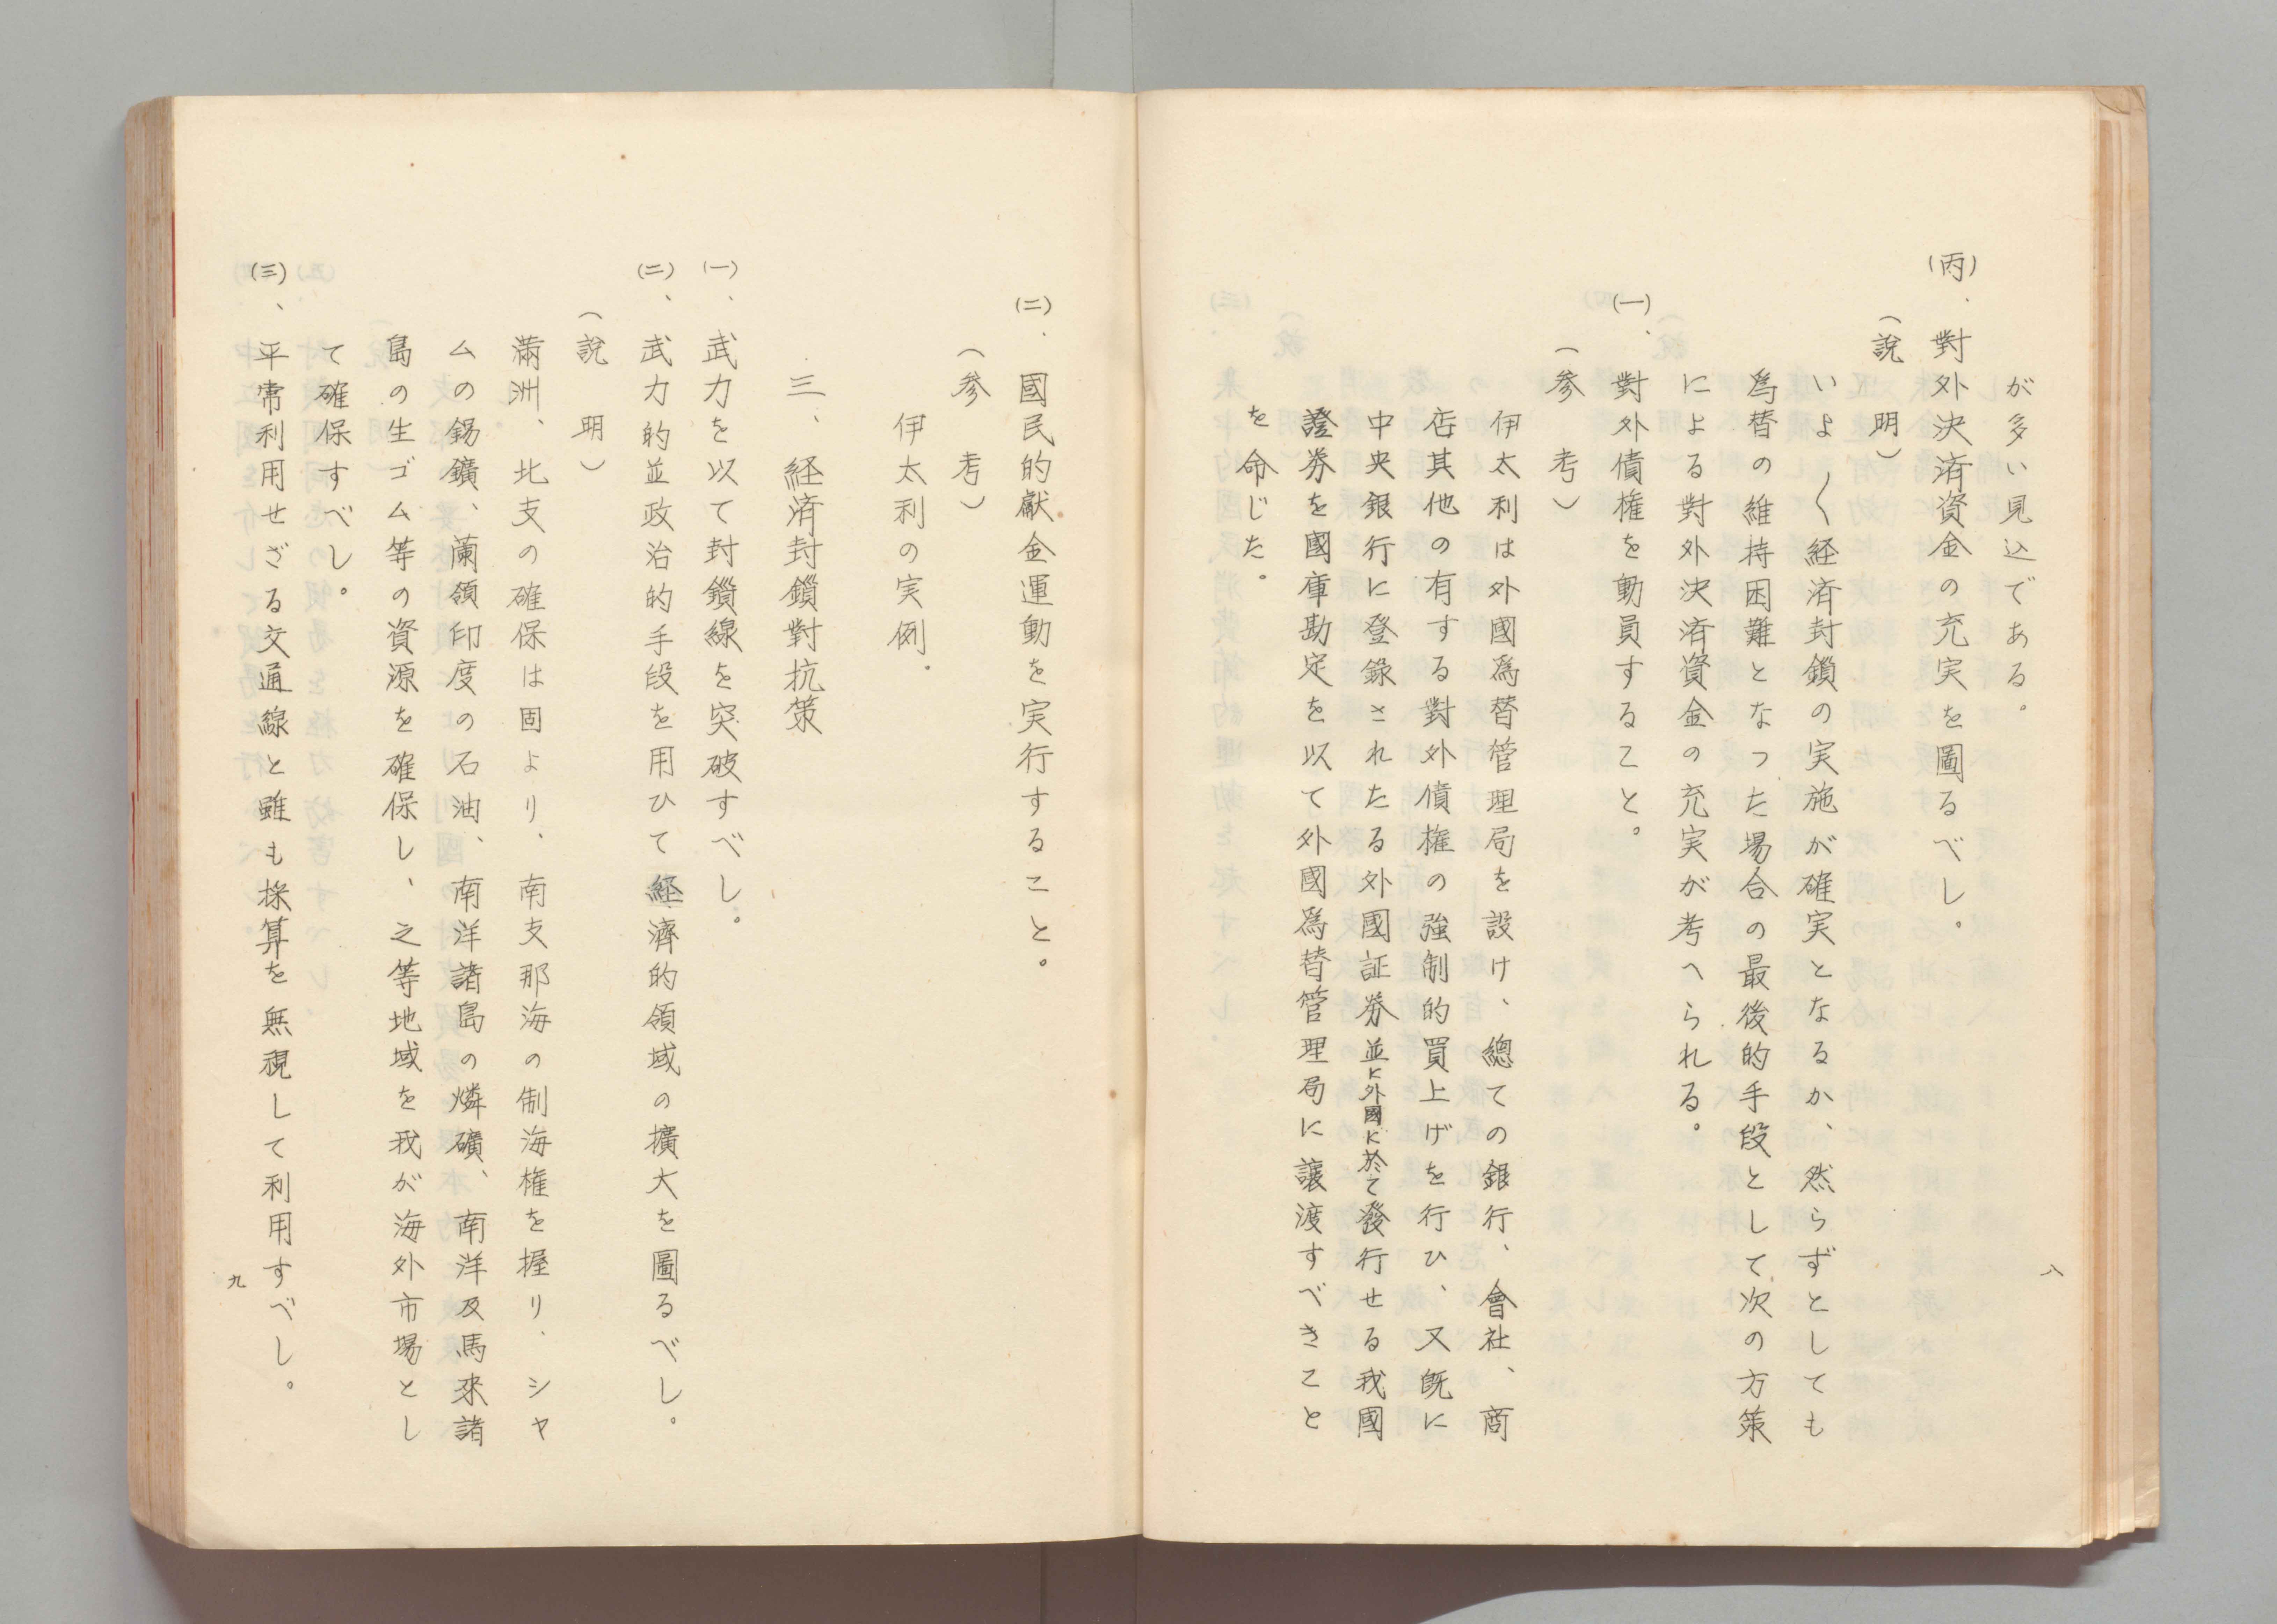 が多い見込である。
(丙)、對外決済資金の充実を圖るべし。
(說明)
いよ〳〵経済封鎖の実施が確実となるか、然らずとしても
爲替の維持困難となつた場合の最後的手段として次の方策
による對外決済資金の充実が考へられる。
(一)、對外債権を動員すること。
(参考)
伊太利は外國爲替管理局を設け、總ての銀行、會社、商
店其他の有する對外債権の強制的買上げを行ひ、又既に
中央銀行に登録されたる外國証券並に外國に於て發行せる我國
證券を國庫勘定を以て外國爲替管理局に譲渡すべきこと
を命じた。
八
(二)、國民的獻金運動を実行すること。
(参考)
伊太利の実例。
三、経済封鎖對抗策
(一)、武力を以て封鎖線を突破すべし。
(二)、武力的並政治的手段を用ひて経濟的領域の擴大を圖るべし。
(說明)
滿洲、北支の確保は固より、南支那海の制海権を握り、シヤ
ムの錫鑛、蘭領印度の石油、南洋諸島の燐礦、南洋及馬來諸
島の生ゴム等の資源を確保し、之等地域を我が海外市場とし
て確保すべし。
(三)、平常利用せざる交通線と雖も採算を無視して利用すべし。
九